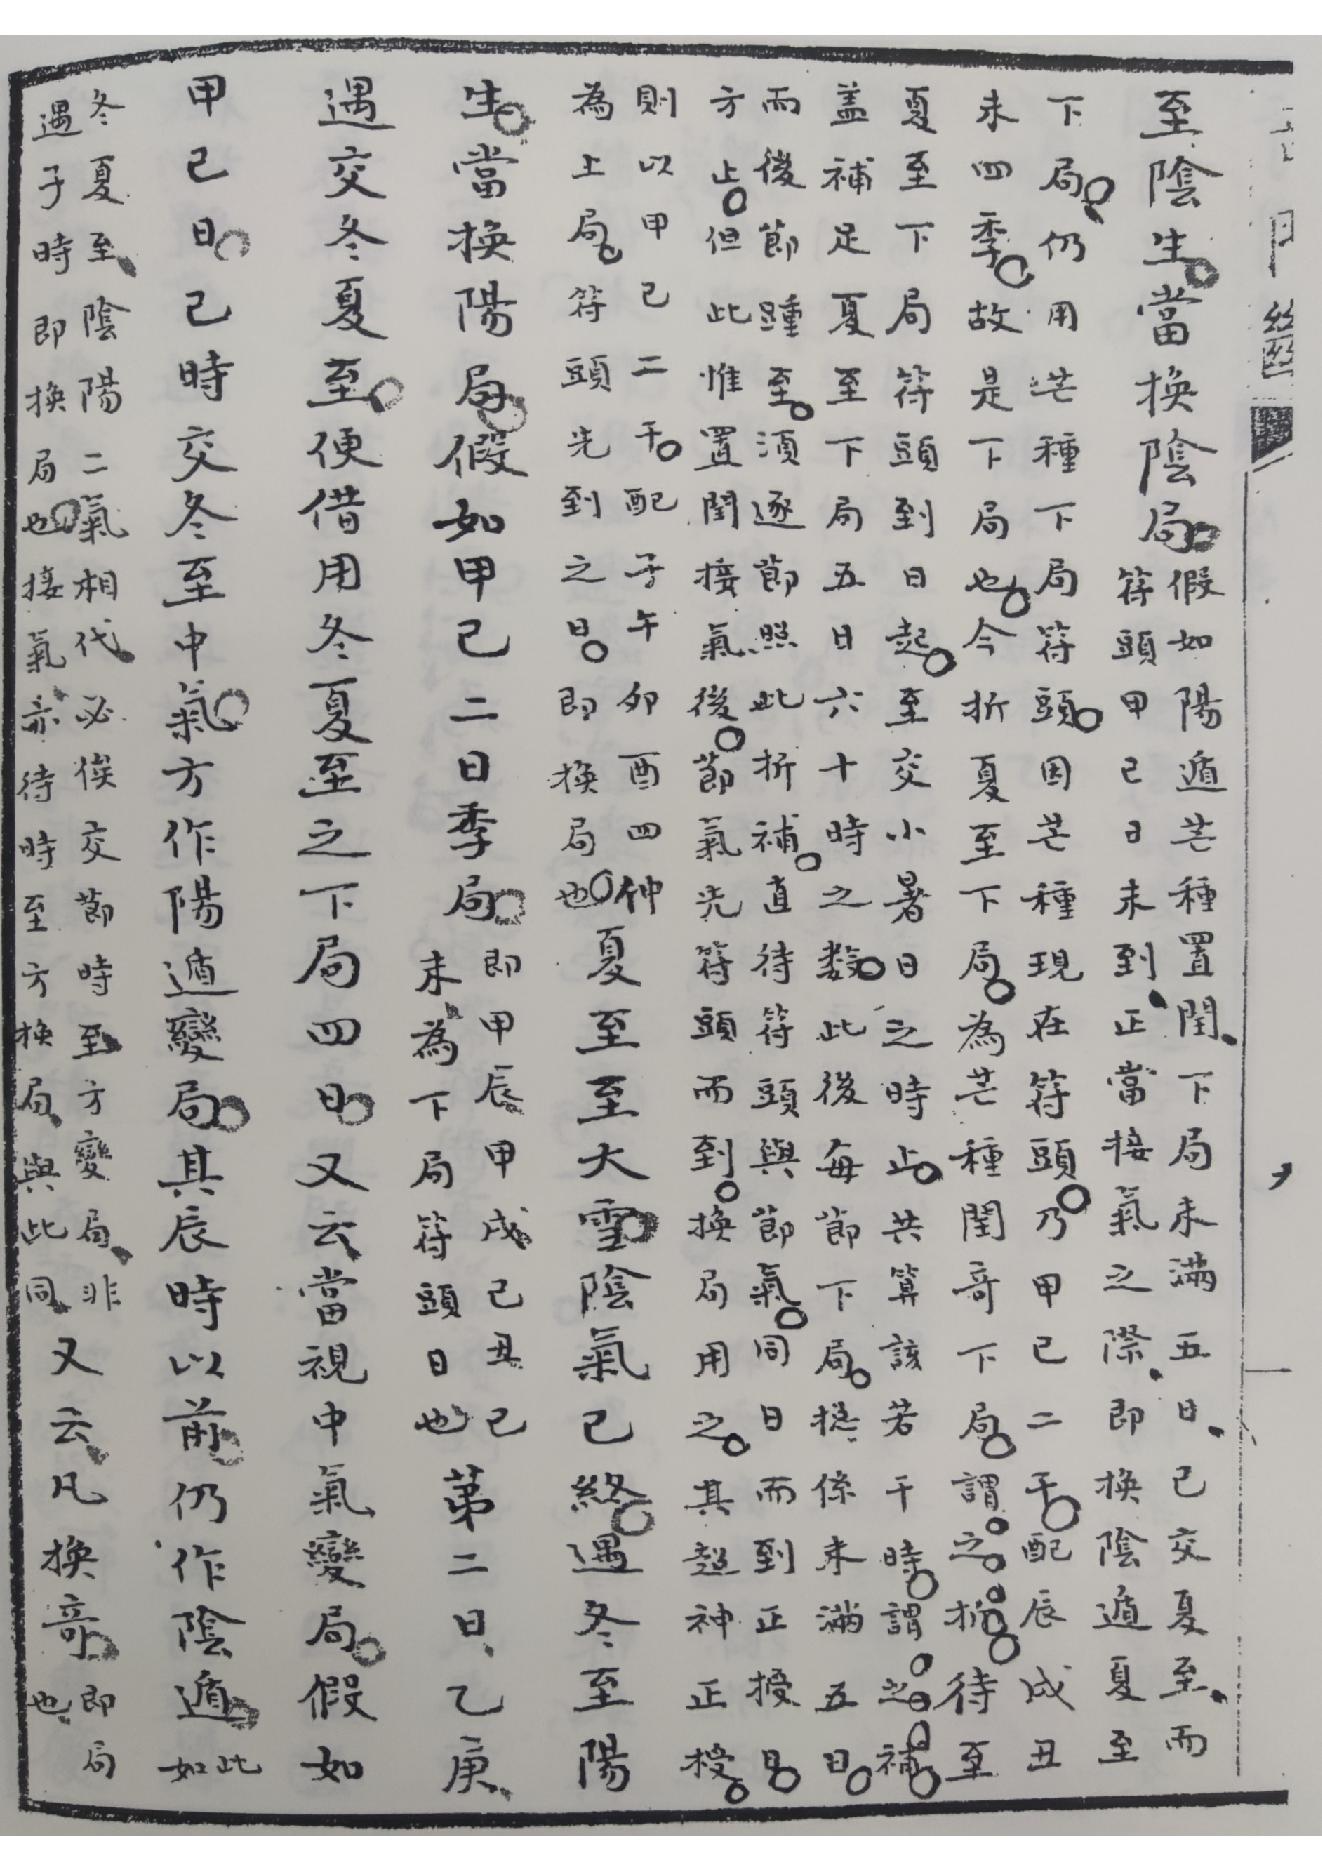 至陰生當換陰局
假如陽遁芒種置閏下局未滿五日已交夏至而
符頭甲己日未到正當接氣之際即換陰遁夏至
下局仍用芒種下局符頭因芒種現在符頭乃甲己二干配辰戌丑
未四季故是下局也今折夏至下局為芒種閏奇下局謂之折待至
夏至下局符頭到日起至交小暑日之時止共算該若干時謂之補
盖補足夏至下局五日六十時之数此後每節下局摠係未滿五日
而後節踵至須逐節照此折補直待符頭與節氣同日而到正授日
方止但此惟置閏接氣後節氣先符頭而到換局用之其超神正授
則以甲己二干配子午卯酉四仲
為上局符頭先到之日即換局也
夏至至大雪陰氣已終遇冬至陽
生當換陽局假如甲己二日季局
即甲辰甲戌己丑己
未為下局符頭日也
第二日乙庚
遇交冬夏至便借用冬夏至之下局四日又云當視中氣變局假如
甲己日己時交冬至中氣方作陽遁變局其辰時以前仍作陰遁
此
如
冬夏至陰陽二氣相代必俟交節時至方變局非
遇子時即換局也接氣亦待時至方換局與此同
又云凡換奇
即局
也